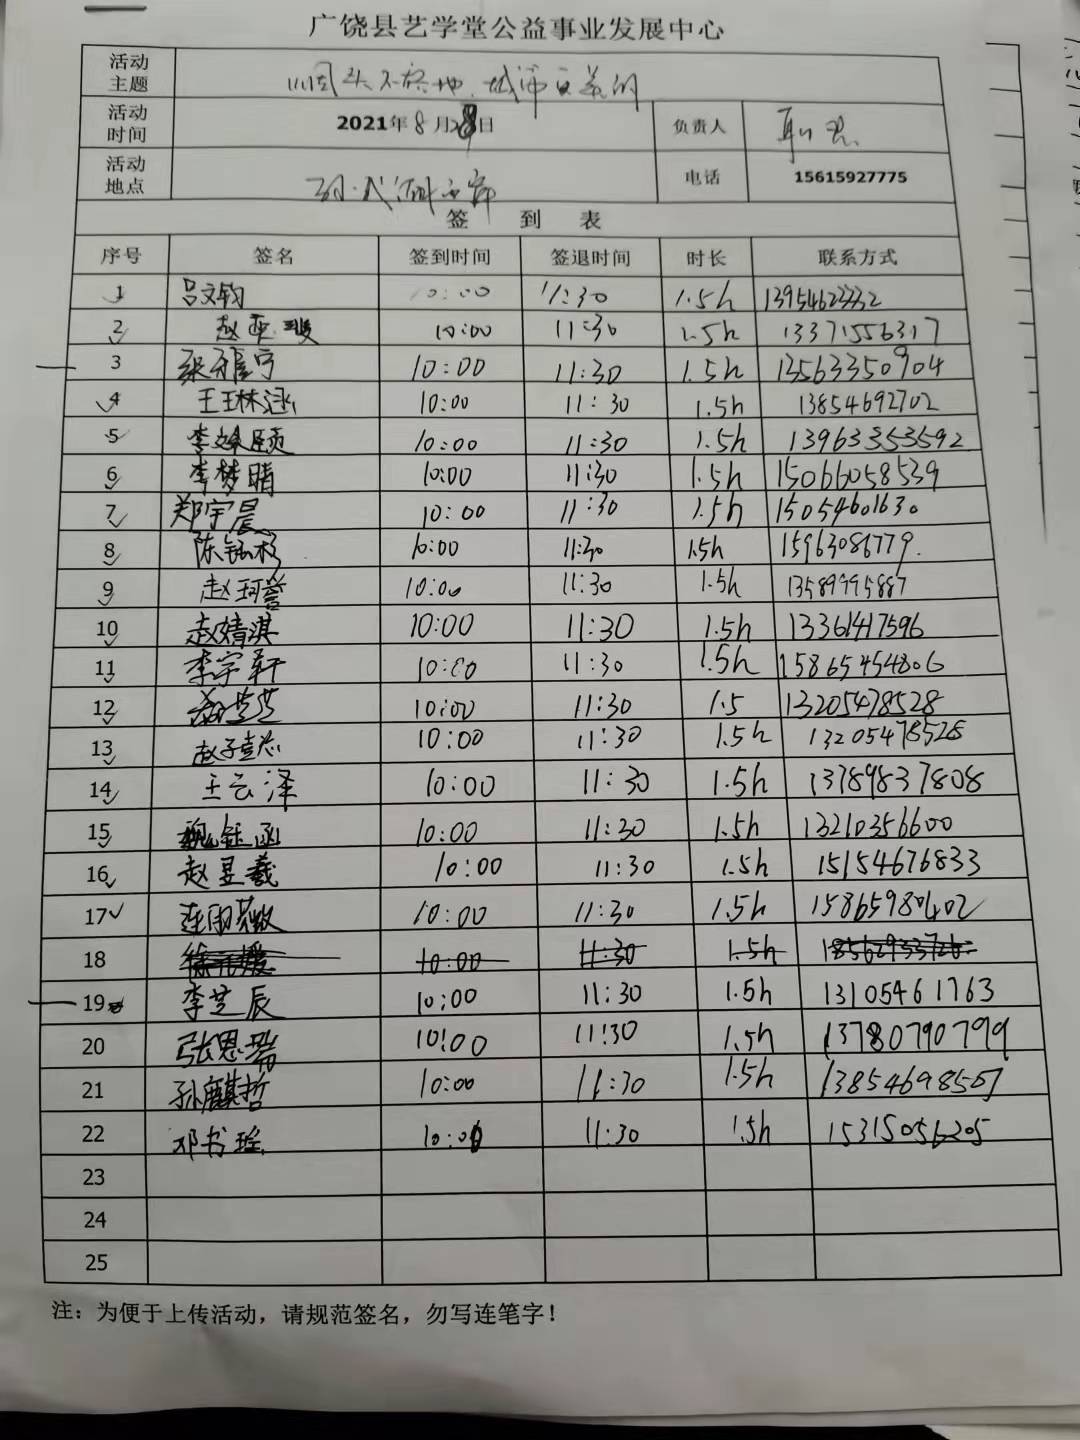 广饶县艺学堂公益事业发展中心
活动主题 烟头不落地,城市更美的
活动时间 2021年8月28日 负责人
活动地点 电话 15615927775
签 到 表
序号 签名 签到时间 签退时间 时长 联系方式
1 吕文钧 10:00 11:30 1.5h
2 赵 10:00 11:30 1.5h 13371556317
3 张 宁 10:00 11:30 1.5h 13563350904
4 王琳涵 10:00 11:30 1.5h 13854692702
5 李 颐 10:00 11:30 1.5h 13963353592
6 李梦晴 10:00 11:30 1.5h 15066058539
7 郑宇晨 10:00 11:30 1.5h 15054601630
8 陈 10:00 11:30 1.5h 15963086779.
9 赵珂誉 10:00 11:30 1.5h 13589995887
10 赵婧淇 10:00 11:30 1.5h 13361417596
11 李宇轩 10:00 11:30 1.5h 15865454806
12 10:00 11:30 1.5 13205478528
13 赵子 10:00 11:30 1.5h 13205478528
14 王云泽 10:00 11:30 1.5h 13789837808
15 魏钰函 10:00 11:30 1.5h 13210356600
16 赵昱羲 10:00 11:30 1.5h 15154676833
17 10:00 11:30 1.5h 15865980402
18 10:00 11:30 1.5h
19 李芝辰 10:00 11:30 1.5h 13105461763
20 张恩瑞 10:00 11:30 1.5h 13780790799
21 孙麒哲 10:00 11:30 1.5h 13854698507
22 邓书瑶 10:00 11:30 1.5h 15315056205
23
24
25
注：为便于上传活动，请规范签名，勿写连笔字！